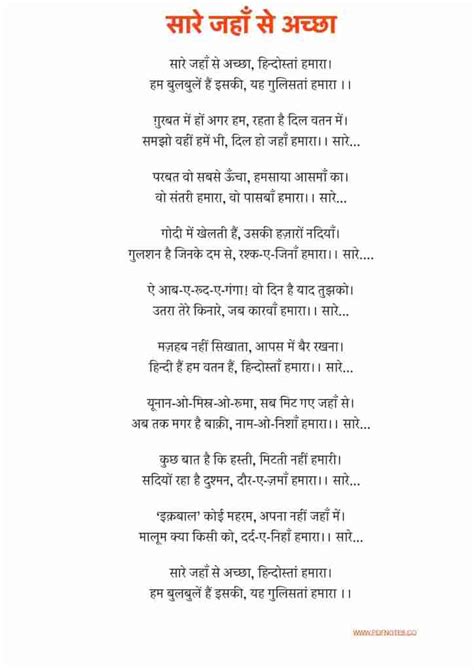 सारे जहाँ से अच्छा
सारे जहाँ से अच्छा, हिन्दोस्तां हमारा।
हम बुलबुलें हैं इसकी, यह गुलिसतां हमारा ।।
ग़ुरबत में हों अगर हम, रहता है दिल वतन में।
समझो वहीं हमें भी, दिल हो जहाँ हमारा।। सारे...
परबत वो सबसे ऊँचा, हमसाया आसमाँ का।
वो संतरी हमारा, वो पासबाँ हमारा।। सारे...
गोदी में खेलती हैं, उसकी हज़ारों नदियाँ।
गुलशन है जिनके दम से, रश्क-ए-जिनाँ हमारा।। सारे....
ऐ आब-ए-रूद-ए-गंगा! वो दिन है याद तुझको।
उतरा तेरे किनारे, जब कारवाँ हमारा।। सारे...
मज़हब नहीं सिखाता, आपस में बैर रखना।
हिन्दी हैं हम वतन हैं, हिन्दोस्तां हमारा।। सारे...
यूनान-ओ-मिस्र-ओ-रूमा, सब मिट गए जहाँ से।
अब तक मगर है बाक़ी, नाम-ओ-निशाँ हमारा।। सारे...
कुछ बात है कि हस्ती, मिटती नहीं हमारी।
सदियों रहा है दुश्मन, दौर-ए-ज़माँ हमारा।। सारे...
'इक़बाल' कोई महरम, अपना नहीं जहाँ में।
मालूम क्या किसी को, दर्द-ए-निहाँ हमारा।। सारे...
सारे जहाँ से अच्छा, हिन्दोस्तां हमारा।
हम बुलबुलें हैं इसकी, यह गुलिसतां हमारा ।।
WWW.PDFNOTES.CO